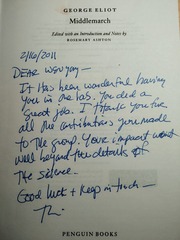 GEORGE ELIOT
Middlemarch
Edited with an Introduction and Notes by
ROSEMARY ASHTON
2/16/2011
Dear
It has been wonderful having
you in the lab. You did a
great job. I thank you for
all the contributions you made
to the group. Your impact went
well beyond the details of
the science.
Good luck + keep in touch —
PENGUIN BOOKS